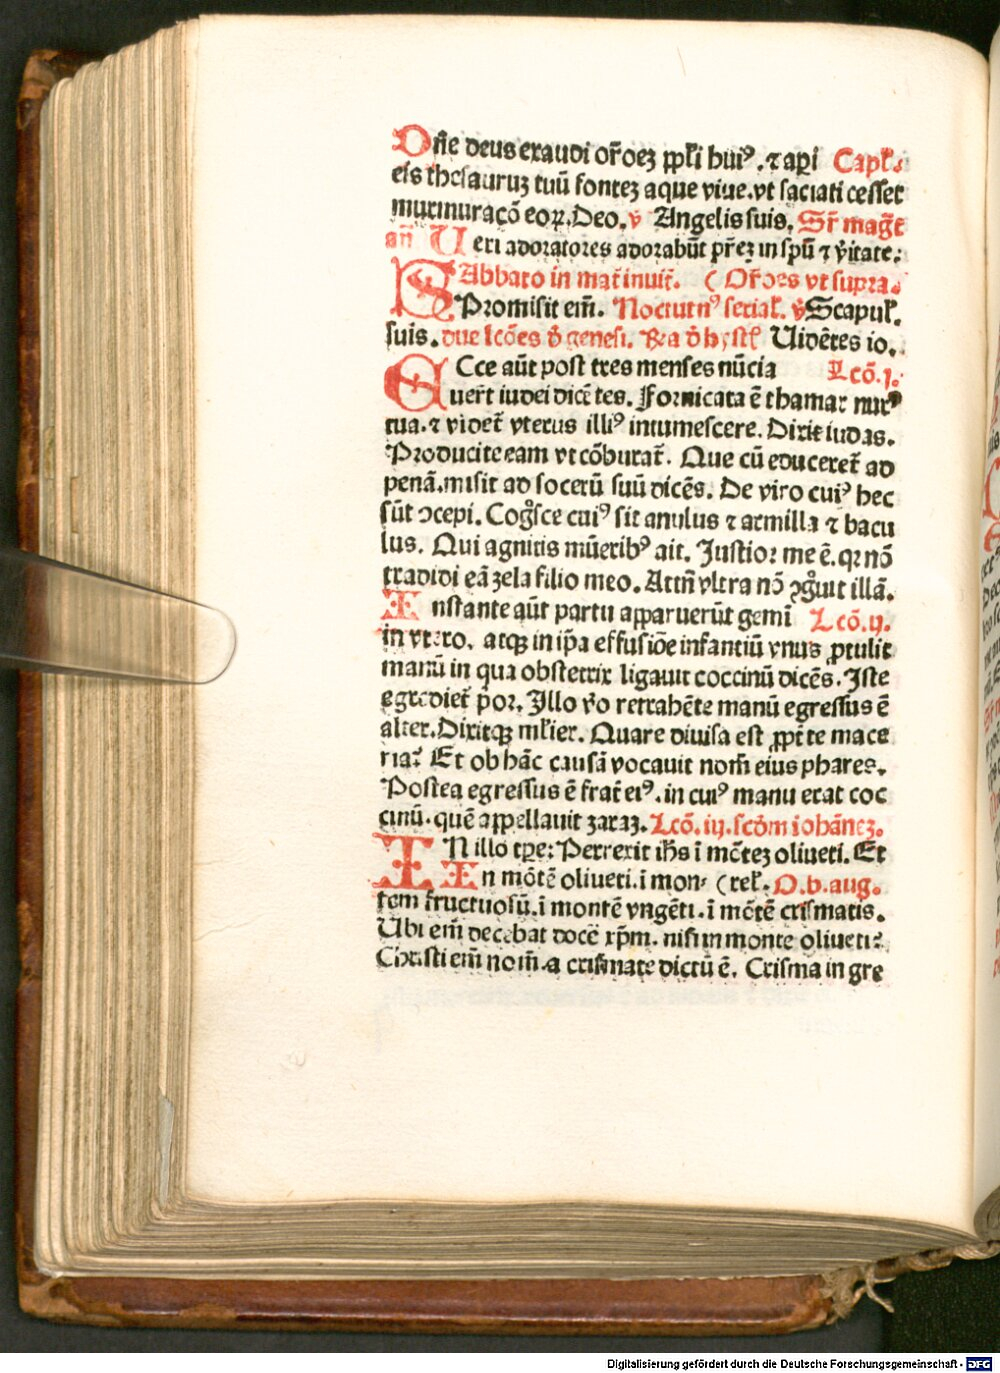 Dñe deus exaudi or̃oeꝫ ppl̃i huiꝰ. ⁊ aꝑi Capl̃.
eis thesauruꝫ tuū fonteꝫ aque viue. vt saciati cesset
murmuracō eoꝝ. Deo. ꝟ Angelis suis. Sr̃ mag̃t
an̄ Ueri adoratores adorabūt pr̃eꝫ in sp̄u ⁊ v̓itate:
SAbbato in mat̃ inuit̃. ( Or̃oes vt supra.
Promisit em̃. Nocturnꝰ ferial̃. ꝟ Scapul̃.
suis. due lcōes d̓ genesi. R̃ia d̓ hystl̃ Uidētes io.
ECce aūt post tres menses nūcia Lcō. j.
uer̃t iudei dicētes. Fornicata ē thamar nurꝰ
tua. ⁊ videt̃ vterus illiꝰ intumescere. Dixit iudas.
Producite eam vt cōburat̃. Que cū educeret̃ ad
penā. misit ad socerū suū dicēs. De viro cuiꝰ hec
sūt ꝯcepi. Cog̊sce cuiꝰ sit anulus ⁊ armilla ⁊ bacu
lus. Qui agnitis mūeribꝰ ait. Justior me ē. qꝛ nō
tradidi eā zela filio meo. Attn̄ vltra nō ꝯg̊uit illā.
Instante aūt partu apparuerūt gemī Lcō. ij.
in vtero. atqꝫ in ip̄a effusiōe infantiū vnus ꝓtulit
manū in qua obstetrix ligauit coccinū dicēs. Iste
egrediet̃ p̓or. Illo v̓o retrahēte manū egressus ē
alter. Dixitqꝫ ml̃ier. Quare diuisa est ꝓpt̃ te mace
ria? Et ob hāc causā vocauit nom̃ eius phares.
Postea egressus ē frat̃ eiꝰ. in cuiꝰ manu erat coc
cinū. quē appellauit zaraꝫ. Lcō. iij. scd̓m iohānēꝫ.
IN illo tꝑe: Perrexit ih̃s ī mōteꝫ oliueti. Et
In mōtē oliueti. ī mon⸗ ( rel̃. O. b. aug.
tem fructuosū. ī montē vngēti. ī mōtē crismatis.
Ubi em̃ decebat docē xp̄m. nisi in monte oliueti?
Christi em̃ nom̃ a crismate dictū ē. Crisma in gre
Digitalisierung gefördert durch die Deutsche Forschungsgemeinschaft - DFG